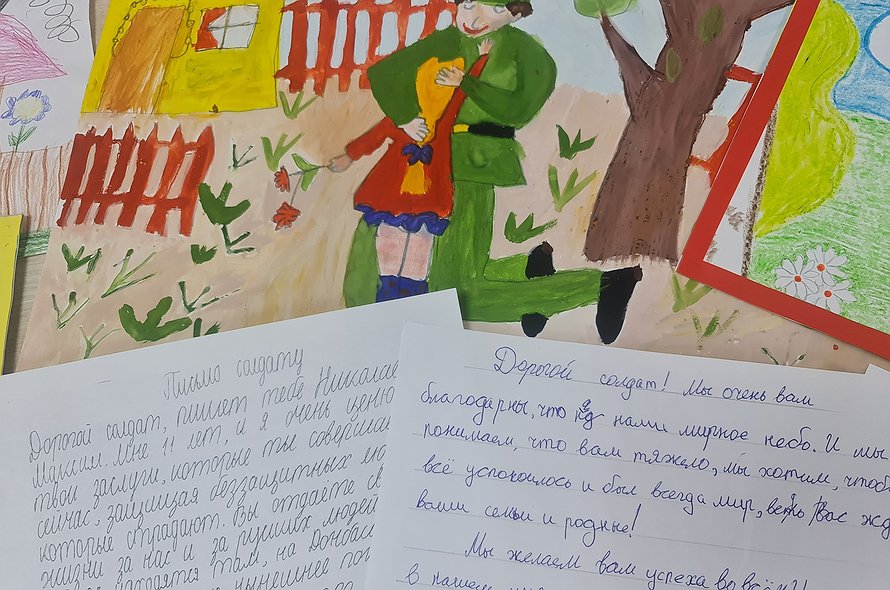 Письмо солдату
Дорогой солдат, пишет тебе Николае
Максим. Мне 11 лет, и я очень ценю
твои заслуги, которые ты совершае
сейчас, защищая беззащитных лю
которые страдают. Вы отдаёте св
жизни за нас и за русских людей
находятся там, на Донбас
нынешнее
Дорогой солдат! Мы очень вам
благодарны, что над нами мирное небо. И мы
понимаем, что вам тяжело, мы хотим, чтобы
всё успокоилось и был всегда мир, ведь Вас жд
ваши семьи и родные!
Мы желаем вам успеха во всём!!
в нашем